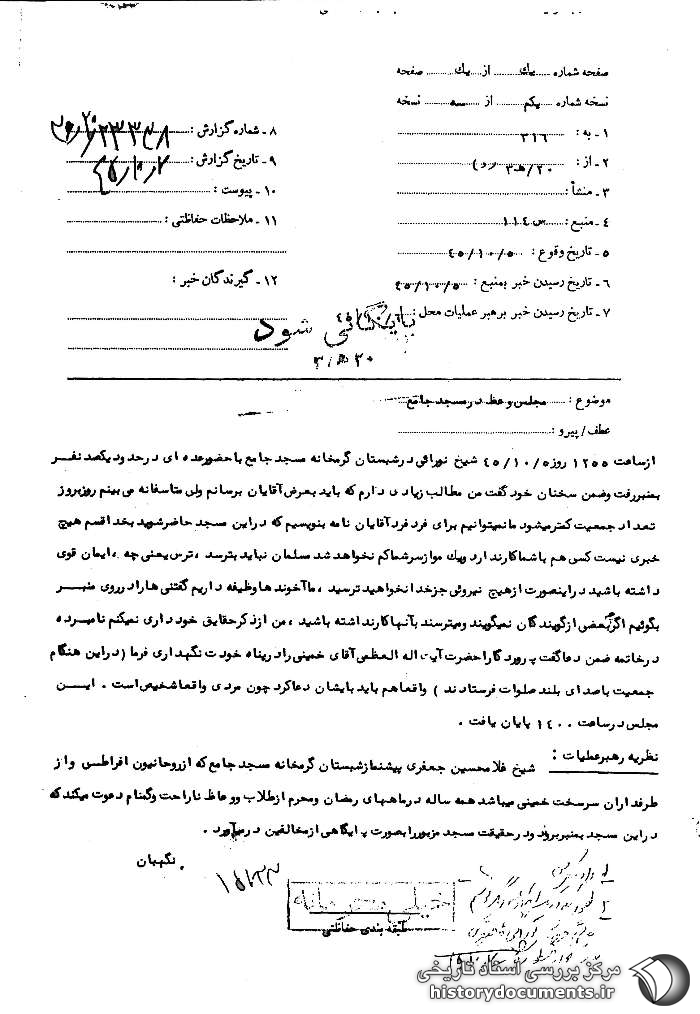 صفحه شماره ..... یک ..... از ..... یک ..... صفحه
نسخه شماره ..... یکم ..... از ..... سه ..... نسخه
۱ - به : ۳۱۶
۲ - از : ۲۰/ه‍ ۳
۳ - منشأ :
۴ - منبع : س ۱۱۴
۵ - تاریخ وقوع : ۴۵/۱۰/۵
۶ - تاریخ رسیدن خبر بمنبع : ۴۵/۱۰/۵
۷ - تاریخ رسیدن خبر برهبر عملیات محل :
۸ - شماره گزارش :
۹ - تاریخ گزارش :
۱۰ - پیوست :
۱۱ - ملاحظات حفاظتی :
۱۲ - گیرندگان خبر :
بایگانی شود
موضوع : مجلس وعظ در مسجد جامع
عطف / پیرو :
از ساعت ۱۲۵۵ روز ۴۵/۱۰/۵ شیخ نوراقی در شبستان گرمخانه مسجد جامع با حضور عده ای در حدود یکصد نفر
بمنبر رفت وضمن سخنان خود گفت من مطالب زیادی دارم که باید بعرض آقایان برسانم ولی متاسفانه می بینم روز بروز
تعداد جمعیت کمتر میشود ما نمیتوانیم برای فرد فرد آقایان نامه بنویسیم که در این مسجد حاضر شوید بخدا قسم هیچ
خبری نیست کسی هم با شما کار ندارد ویک مو از سر شما کم نخواهد شد مسلمان نباید بترسد ، ترس یعنی چه ، ایمان قوی
داشته باشید در اینصورت از هیچ نیروئی جز خدا نخواهید ترسید ، ما آخوندها وظیفه داریم گفتنی ها را در روی منبر
بگوئیم اگر بعضی از گویندگان نمیگویند ومیترسند بآنها کار نداشته باشید ، من از ذکر حقایق خود داری نمیکنم نامبرده
در خاتمه ضمن دعا گفت پروردگارا حضرت آیت اله العظمی آقای خمینی را در پناه خودت نگهداری فرما (در این هنگام
جمعیت با صدای بلند صلوات فرستادند ) واقعا هم باید بایشان دعا کرد چون مردی واقعا شخیص است . ایــن
مجلس در ساعت ۱۴۰۰ پایان یافت .
نظریه رهبر عملیات : شیخ غلامحسین جعفری پیشنماز شبستان گرمخانه مسجد جامع که از روحانیون افراطی و از
طرفداران سرسخت خمینی میباشد همه ساله در ماههای رمضان ومحرم از طلاب ووعاظ ناراحت وگمنام دعوت میکند که
در این مسجد بمنبر بروند ودر حقیقت مسجد مزبور را بصورت پایگاهی از مخالفین در میآورد .
نگهبان
خیلی محرمانه
طبقه بندی حفاظتی
مرکز بررسی اسناد تاریخی
historydocuments.ir